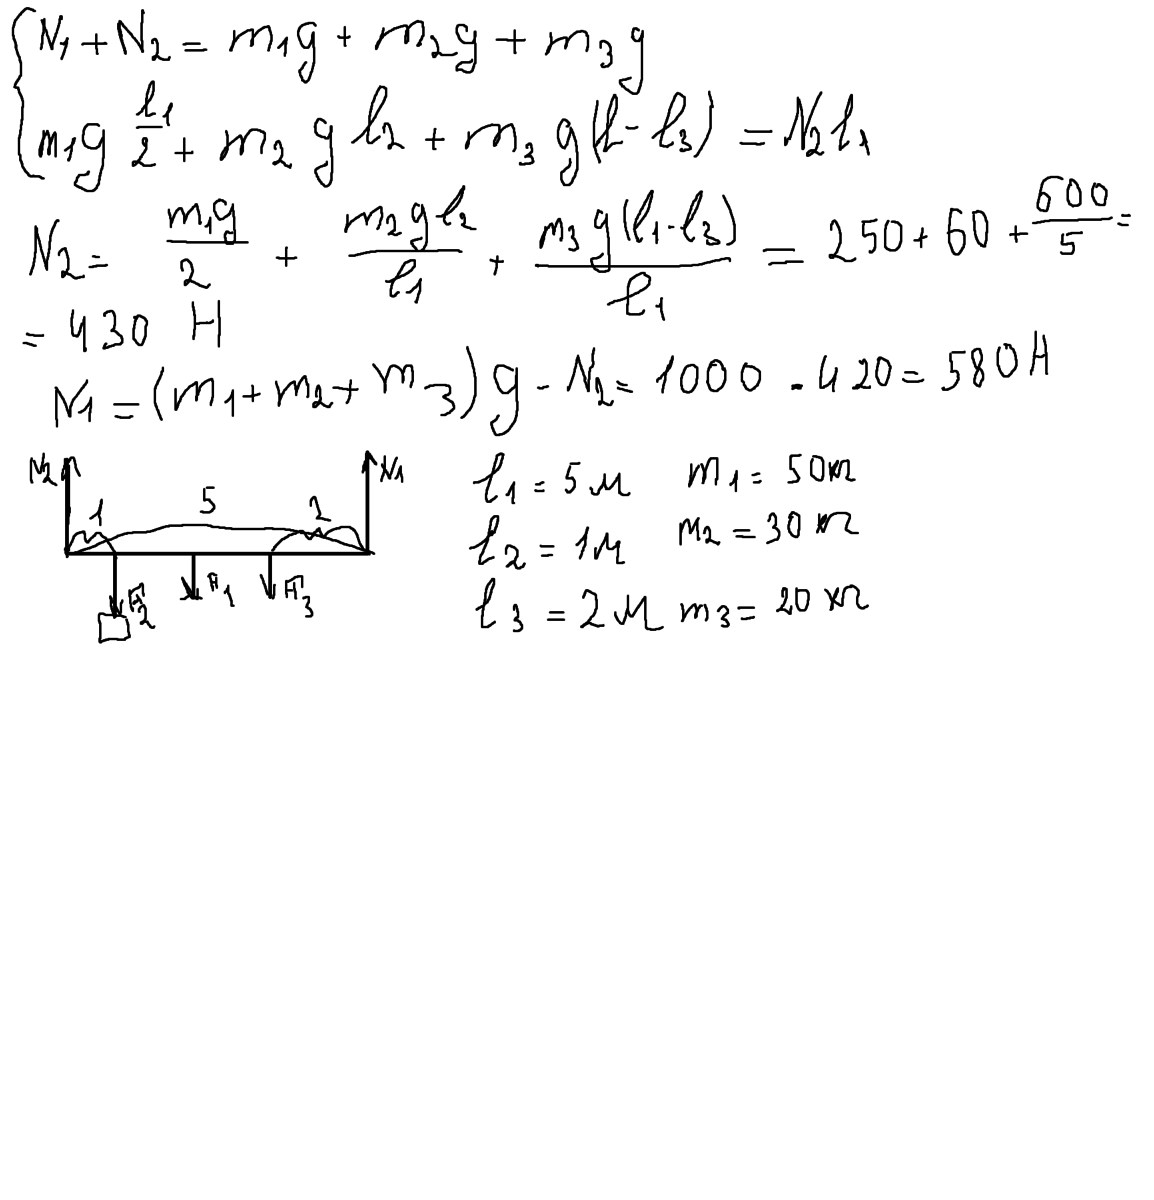 N₁ + N₂ = m₁g + m₂g + m₃g
m₁g l₁/2 + m₂ g l₂ + m₃ g(l - l₃) = N₂l₁
N₂ = m₁g/2 + m₂gl₂/l₁ + m₃g(l₁-l₃)/l₁ = 250 + 60 + 600/5 =
= 430 Н
N₁ = (m₁ + m₂ + m₃)g - N₂ = 1000 - 420 = 580Н
N₂ N₁ l₁ = 5м m₁ = 50кг
1 5 2 l₂ = 1м m₂ = 30 кг
F₂ F₁ F₃ l₃ = 2м m₃ = 20 кг